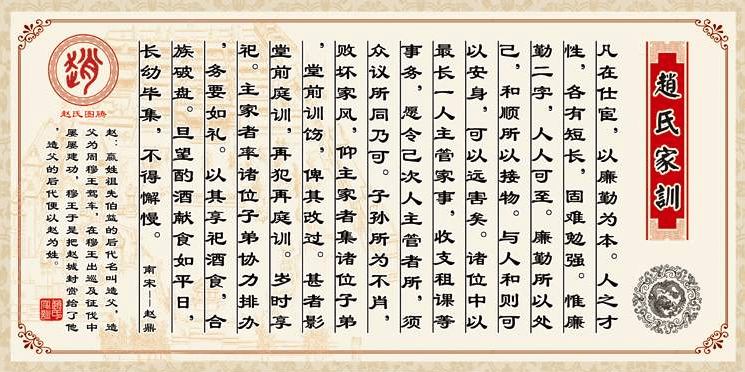 趙氏家訓
凡在仕宦，以廉勤为本。人之才
性，各有短长，固难勉强。惟廉
勤二字，人人可至。廉勤所以处
己，和顺所以接物。与人和则可
以安身，可以远害矣。诸位中以
最长一人主管家事，收支租课等
事务，愿令己次人主管者所，须
众议所同乃可。子孙所为不肖，
败坏家风，仰主家者集诸位子弟
，堂前训饬，俾其改过。甚者影
堂前庭训，再犯再庭训。岁时享
祀。主家者率诸位子弟协力排办
，务要如礼。以其享祀酒食，合
族破盘。旦望酌酒献食如平日，
长幼毕集，不得懈慢。
南宋——赵鼎
趙
赵氏图腾
赵：嬴姓祖先伯益的后代名叫造父，造
父为周穆王驾车，在穆王出巡及征伐中
屡屡建功，穆王于是把赵城封赏给了他
，造父的后代便以赵为姓。